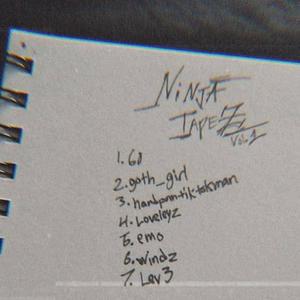 NiNJA
TAPEZZ
VOL.1
1. 60
2. goth_girl
3. handpan-tik-tokman
4. Loveleyz
5. emo
6. windz
7. Lev3